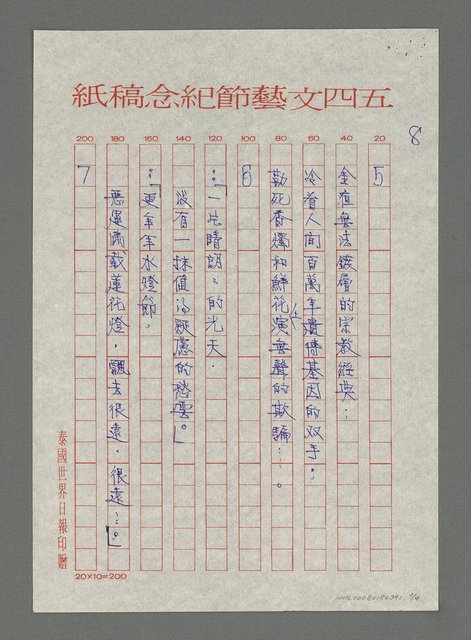 五四文藝節紀念稿紙
8
20
40
60
80
100
120
140
160
180
200
5
金箔無法鍍層的宗教經典：
冷着人間百萬年遺傳基因的双手。
勒死香燭和鮮花演無聲的欺騙……。
6
：「一片晴朗朗的光天．
没有一抹值得疑慮的愁雲。」
：「更年年水燈節，
惡運滿載蓮花燈，飄去很遠，很遠…。」
7
泰國世界日報印贈
20×10=200